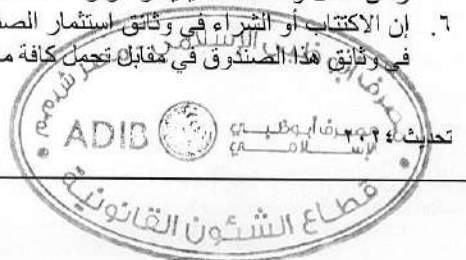 ٦. إن الاكتتاب أو الشراء في وثائق استثمار الصـ
في وثائق هذا الصندوق في مقابل تحمل كافة مـ
مصرف أبوظبي الإسلامي
ADIB
مصرف أبوظبي
الإسلامي
تحديث ٢٠٢٤
قطاع الشئون القانونية